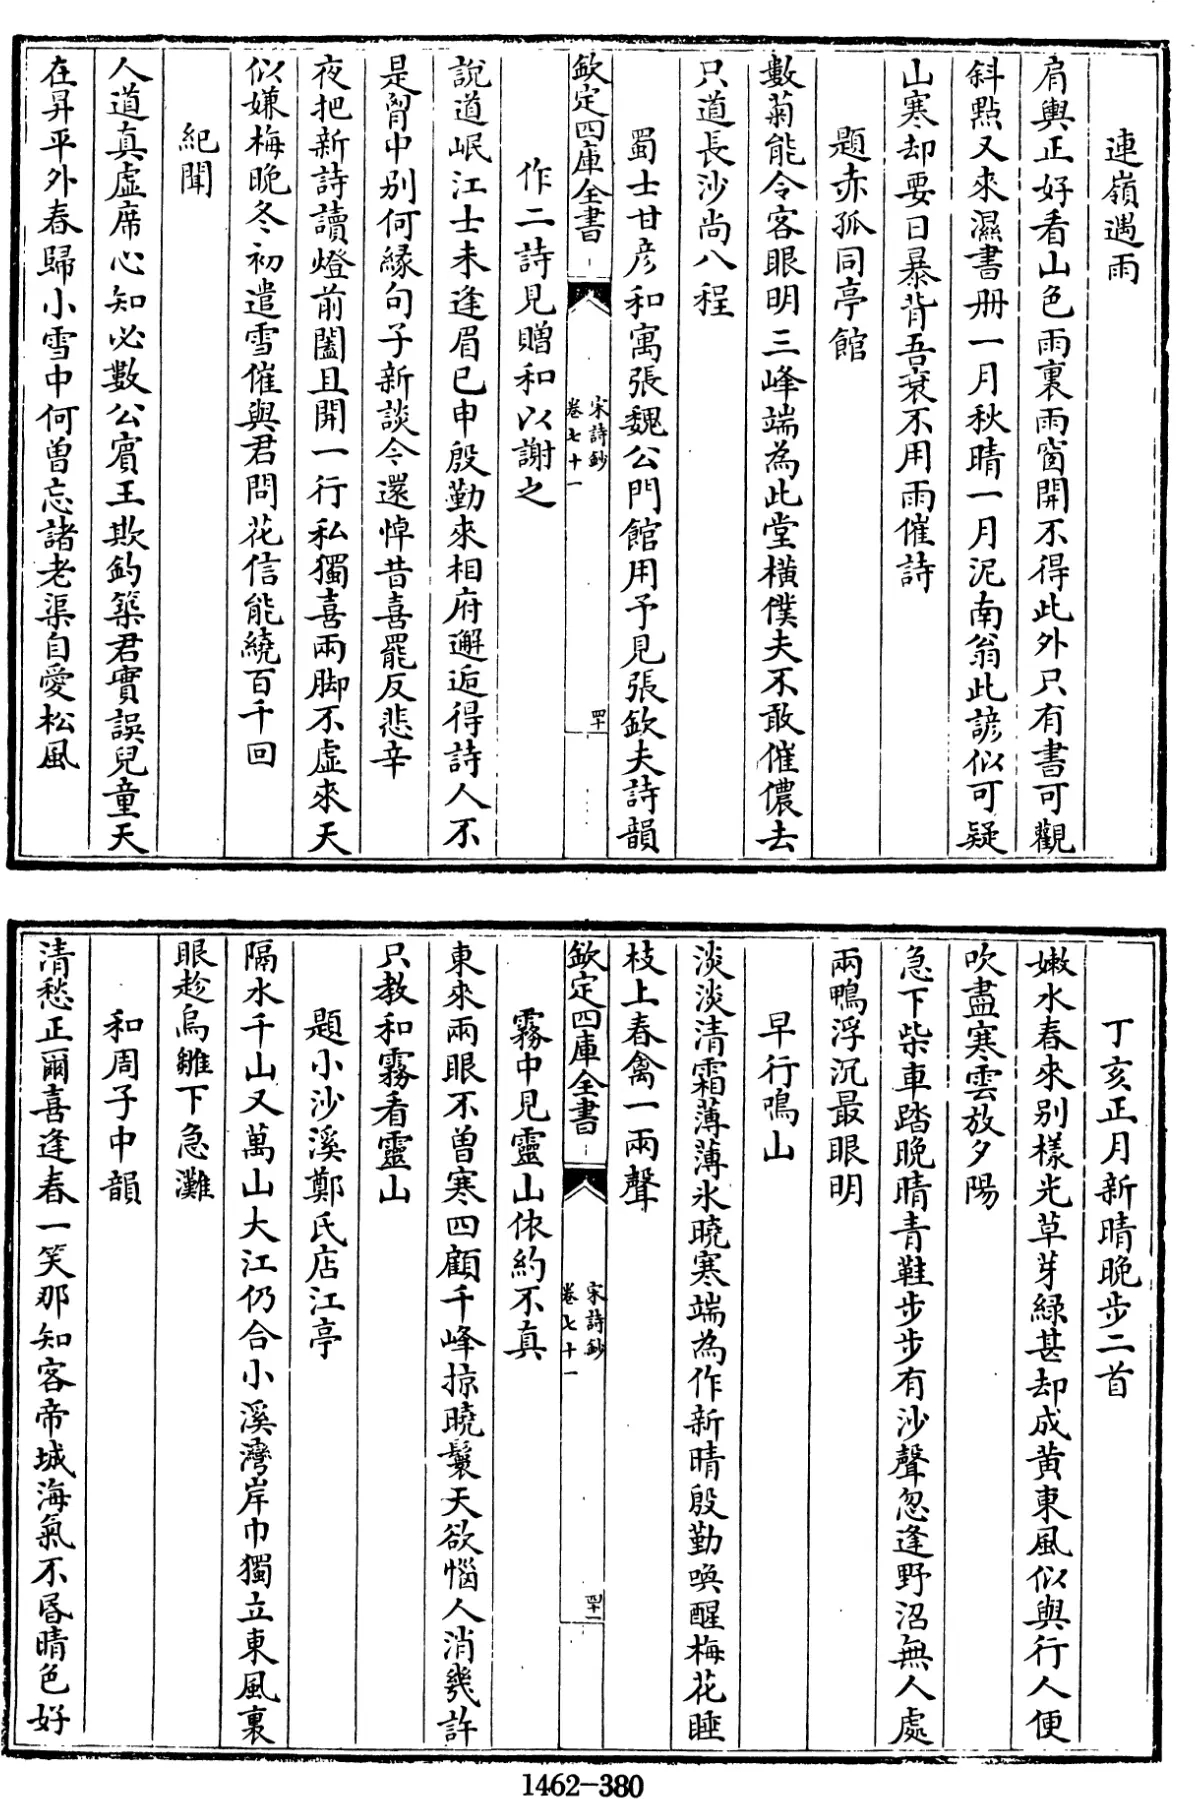 連嶺遇雨
肩輿正好看山色雨裏雨窗開不得此外只有書可觀
斜點又來濕書册一月秋晴一月泥南翁此諺似可疑
山寒却要日暴背吾衰不用雨催詩
題赤孤同亭館
數菊能令客眼明三峰端為此堂橫僕夫不敢催儂去
只道長沙尚八程
蜀士甘彦和寓張魏公門館用予見張欽夫詩韻
欽定四庫全書
宋詩鈔
卷七十一
四十
作二詩見贈和以謝之
說道岷江士未逢眉已申殷勤來相府邂逅得詩人不
是胷中别何緣句子新談今還悼昔喜罷反悲辛
夜把新詩讀燈前闔且開一行私獨喜兩脚不虛來天
似嫌梅晚冬初遣雪催與君問花信能繞百千回
紀聞
人道真虛席心知必數公賔王欺釣築君實誤兒童天
在昇平外春歸小雪中何曾忘諸老渠自愛松風
丁亥正月新晴晚步二首
嫩水春來别樣光草芽緑甚却成黄東風似與行人便
吹盡寒雲放夕陽
急下柴車踏晚晴青鞋步步有沙聲忽逢野沼無人處
兩鴨浮沉最眼明
早行鳴山
淡淡清霜薄薄氷曉寒端為作新晴殷勤喚醒梅花睡
枝上春禽一兩聲
欽定四庫全書
宋詩鈔
卷七十一
四十一
霧中見靈山依約不真
東來兩眼不曾寒四顧千峰掠曉鬟天欲惱人消幾許
只教和霧看靈山
題小沙溪鄭氏店江亭
隔水千山又萬山大江仍合小溪灣岸巾獨立東風裏
眼趁烏雛下急灘
和周子中韻
清愁正爾喜逢春一笑那知客帝城海氣不昬晴色好
1462-380